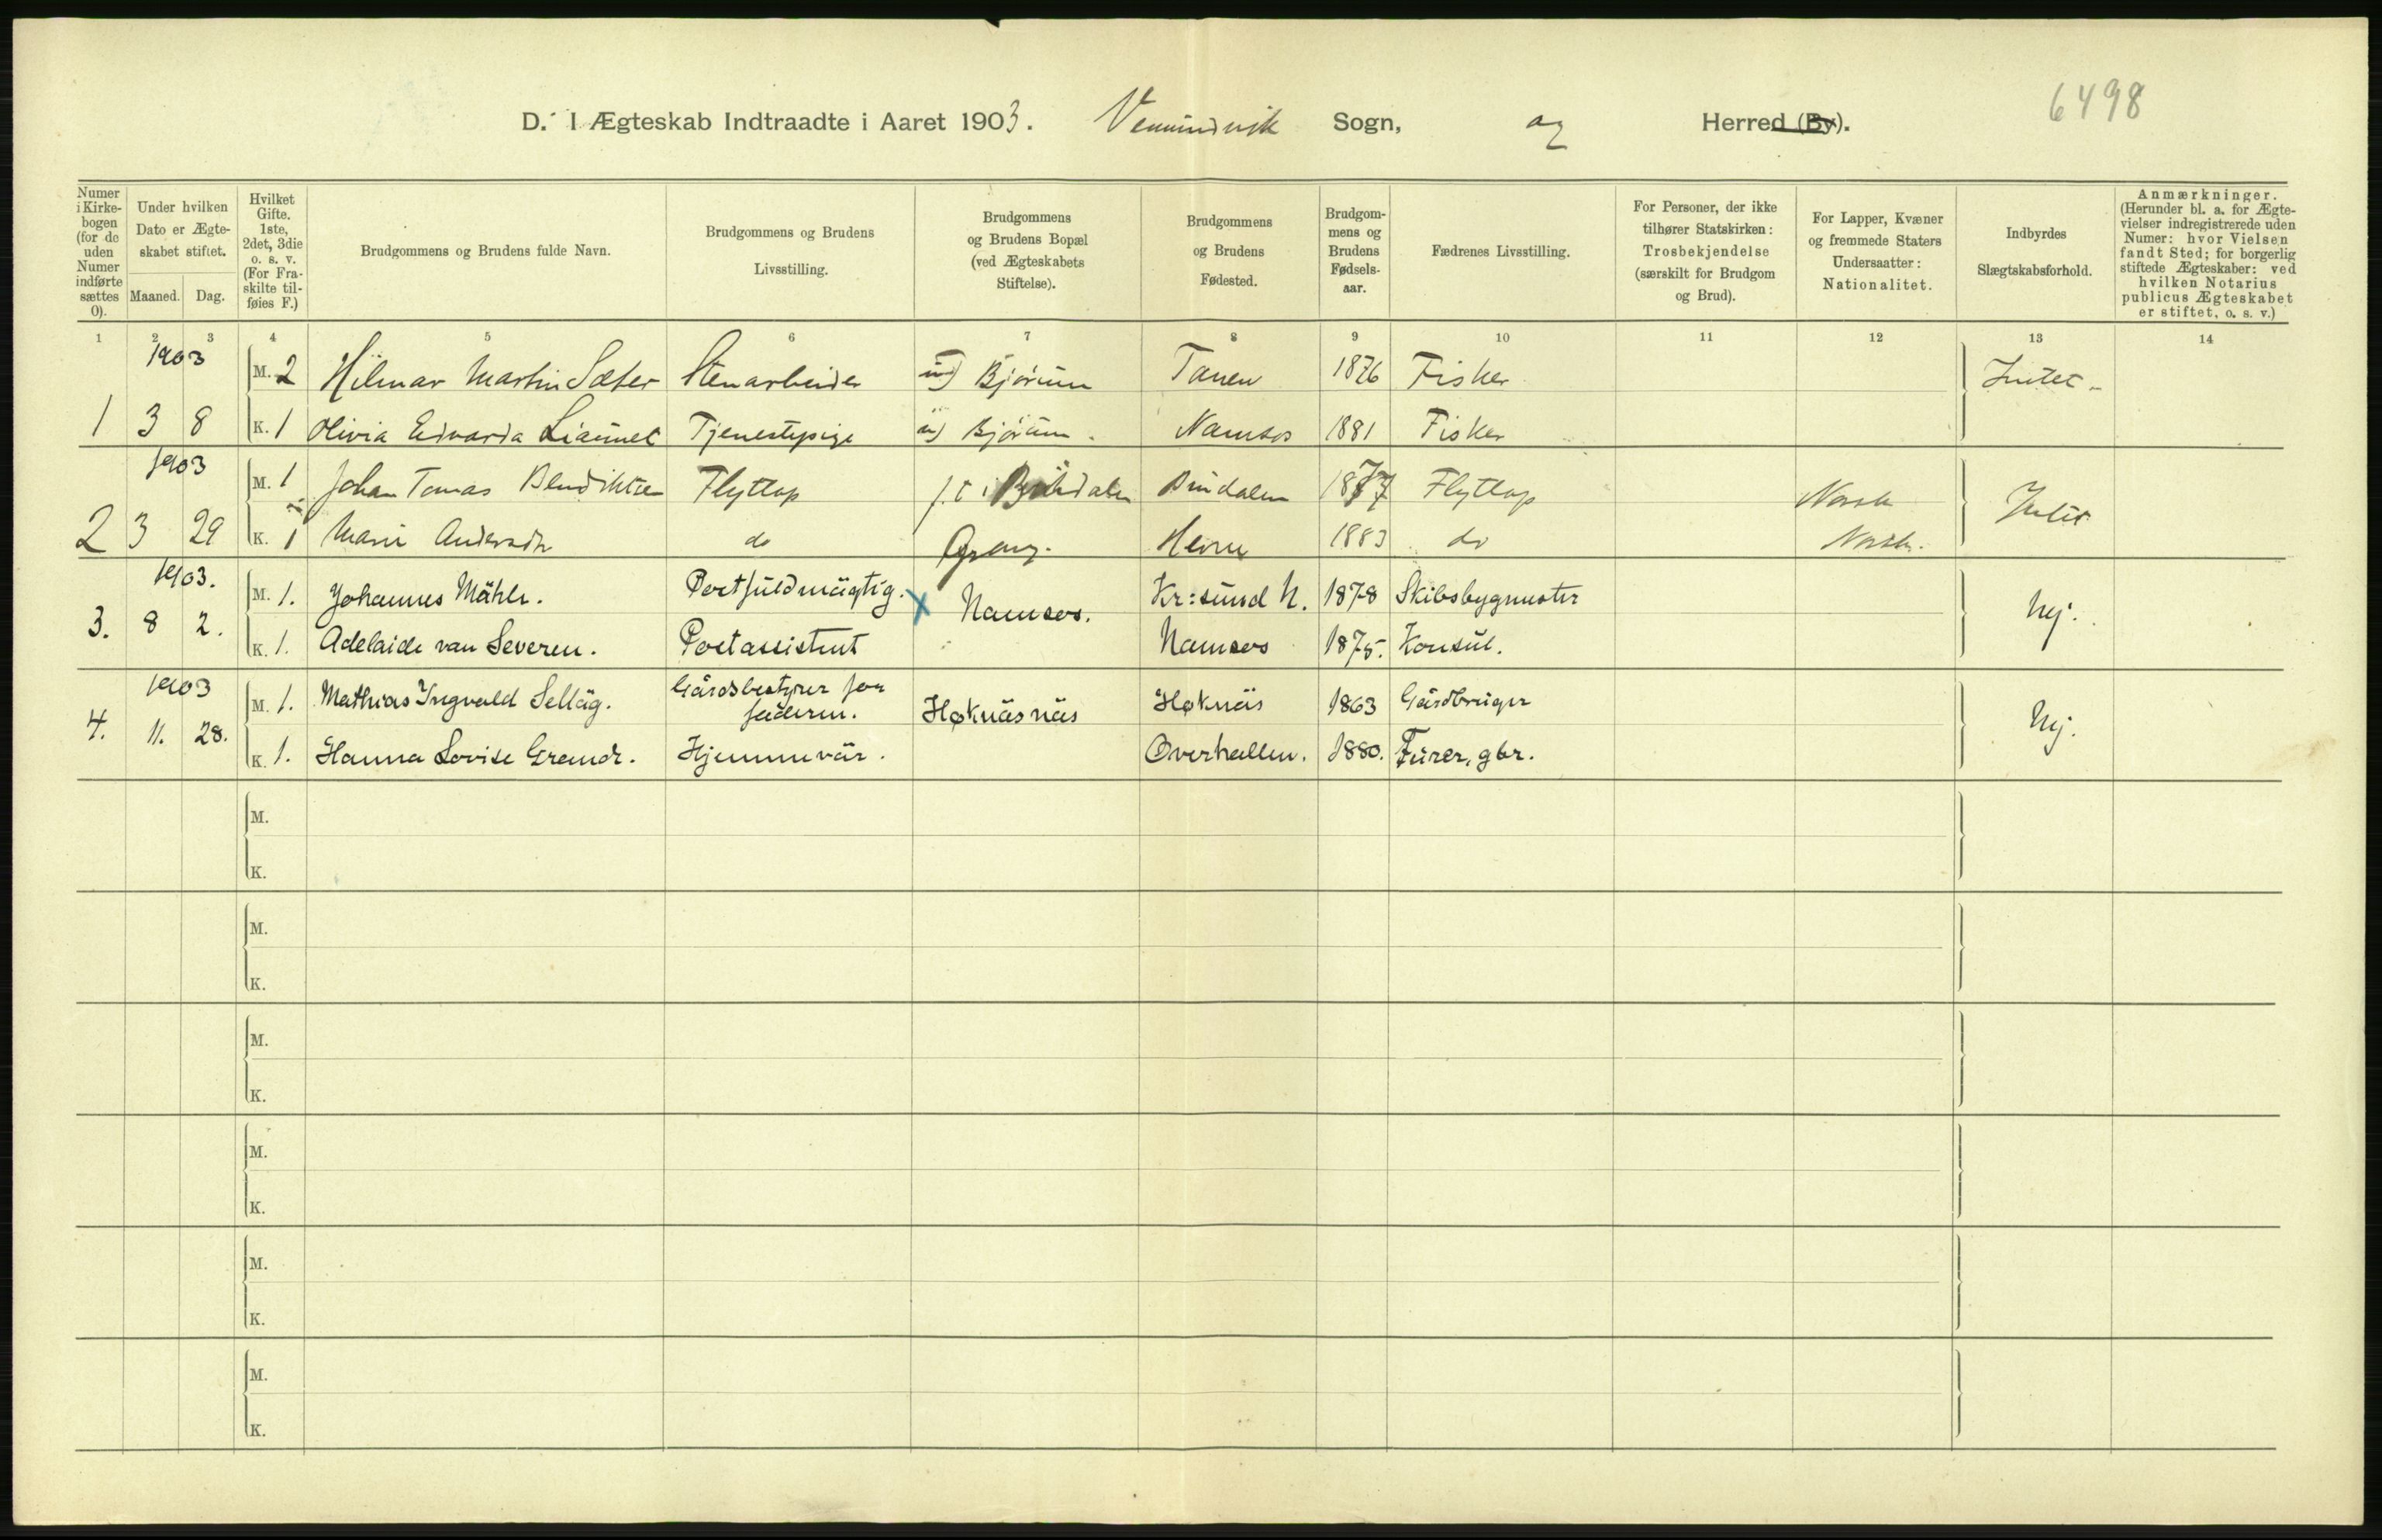 6498
D. I Ægteskab Indtraadte i Aaret 1903. Vemundvik Sogn, og Herred (By).
Numer i Kirkebogen (for de uden Numer indførte sættes 0).
Under hvilken Dato er Ægteskabet stiftet.
Maaned. Dag.
Hvilket Gifte. 1ste, 2det, 3die o. s. v. (For Fraskilte tilføies F.)
Brudgommens og Brudens fulde Navn.
Brudgommens og Brudens Livsstilling.
Brudgommens og Brudens Bopæl (ved Ægteskabets Stiftelse).
Brudgommens og Brudens Fødested.
Brudgommens og Brudens Fødselsaar.
Fædrenes Livsstilling.
For Personer, der ikke tilhører Statskirken: Trosbekjendelse (særskilt for Brudgom og Brud).
For Lapper, Kvæner og fremmede Staters Undersaatter: Nationalitet.
Indbyrdes Slægtskabsforhold.
Anmærkninger. (Herunder bl. a. for Ægtevielser indregistrerede uden Numer: hvor Vielsen fandt Sted; for borgerlig stiftede Ægteskaber: ved hvilken Notarius publicus Ægteskabet er stiftet, o. s. v.)
1 2 3 4 5 6 7 8 9 10 11 12 13 14
1903 M. 2 Hilmar Martin Sæter Stenarbeider Bjørum 1876 Fisker Intet
1 3 8 K. 1 Olivia Edvarda Tjenestepige Bjørum Namsos 1881 Fisker
1903 M. 1 Johan Tomas Bendiktsen Flytlap Bindalen Bindalen 1877 Flytlap Norsk Intet
2 3 29 K. 1 Marie Andersdtr do Grong. 1883 do Norsk.
1903. M. 1. Johannes Mähle. Postfuldmägtig. x Namsos. Kr:sund N. 1878 Skibsbygmester Nej.
3. 8 2. K. 1. Adelaide van Severen. Postassistent Namsos 1875. Konsul.
1903 M. 1. Mathias Ingvald Selläg. Gårdsbestyrer for faderen. Høknäsnäs Høknäs 1863 Gårdbruger Nej.
4. 11. 28. K. 1. Hanna Lovise Grande. Hjemmevär. Overhallen. 1880. Furer, gbr.
M.
K.
M.
K.
M.
K.
M.
K.
M.
K.
M.
K.